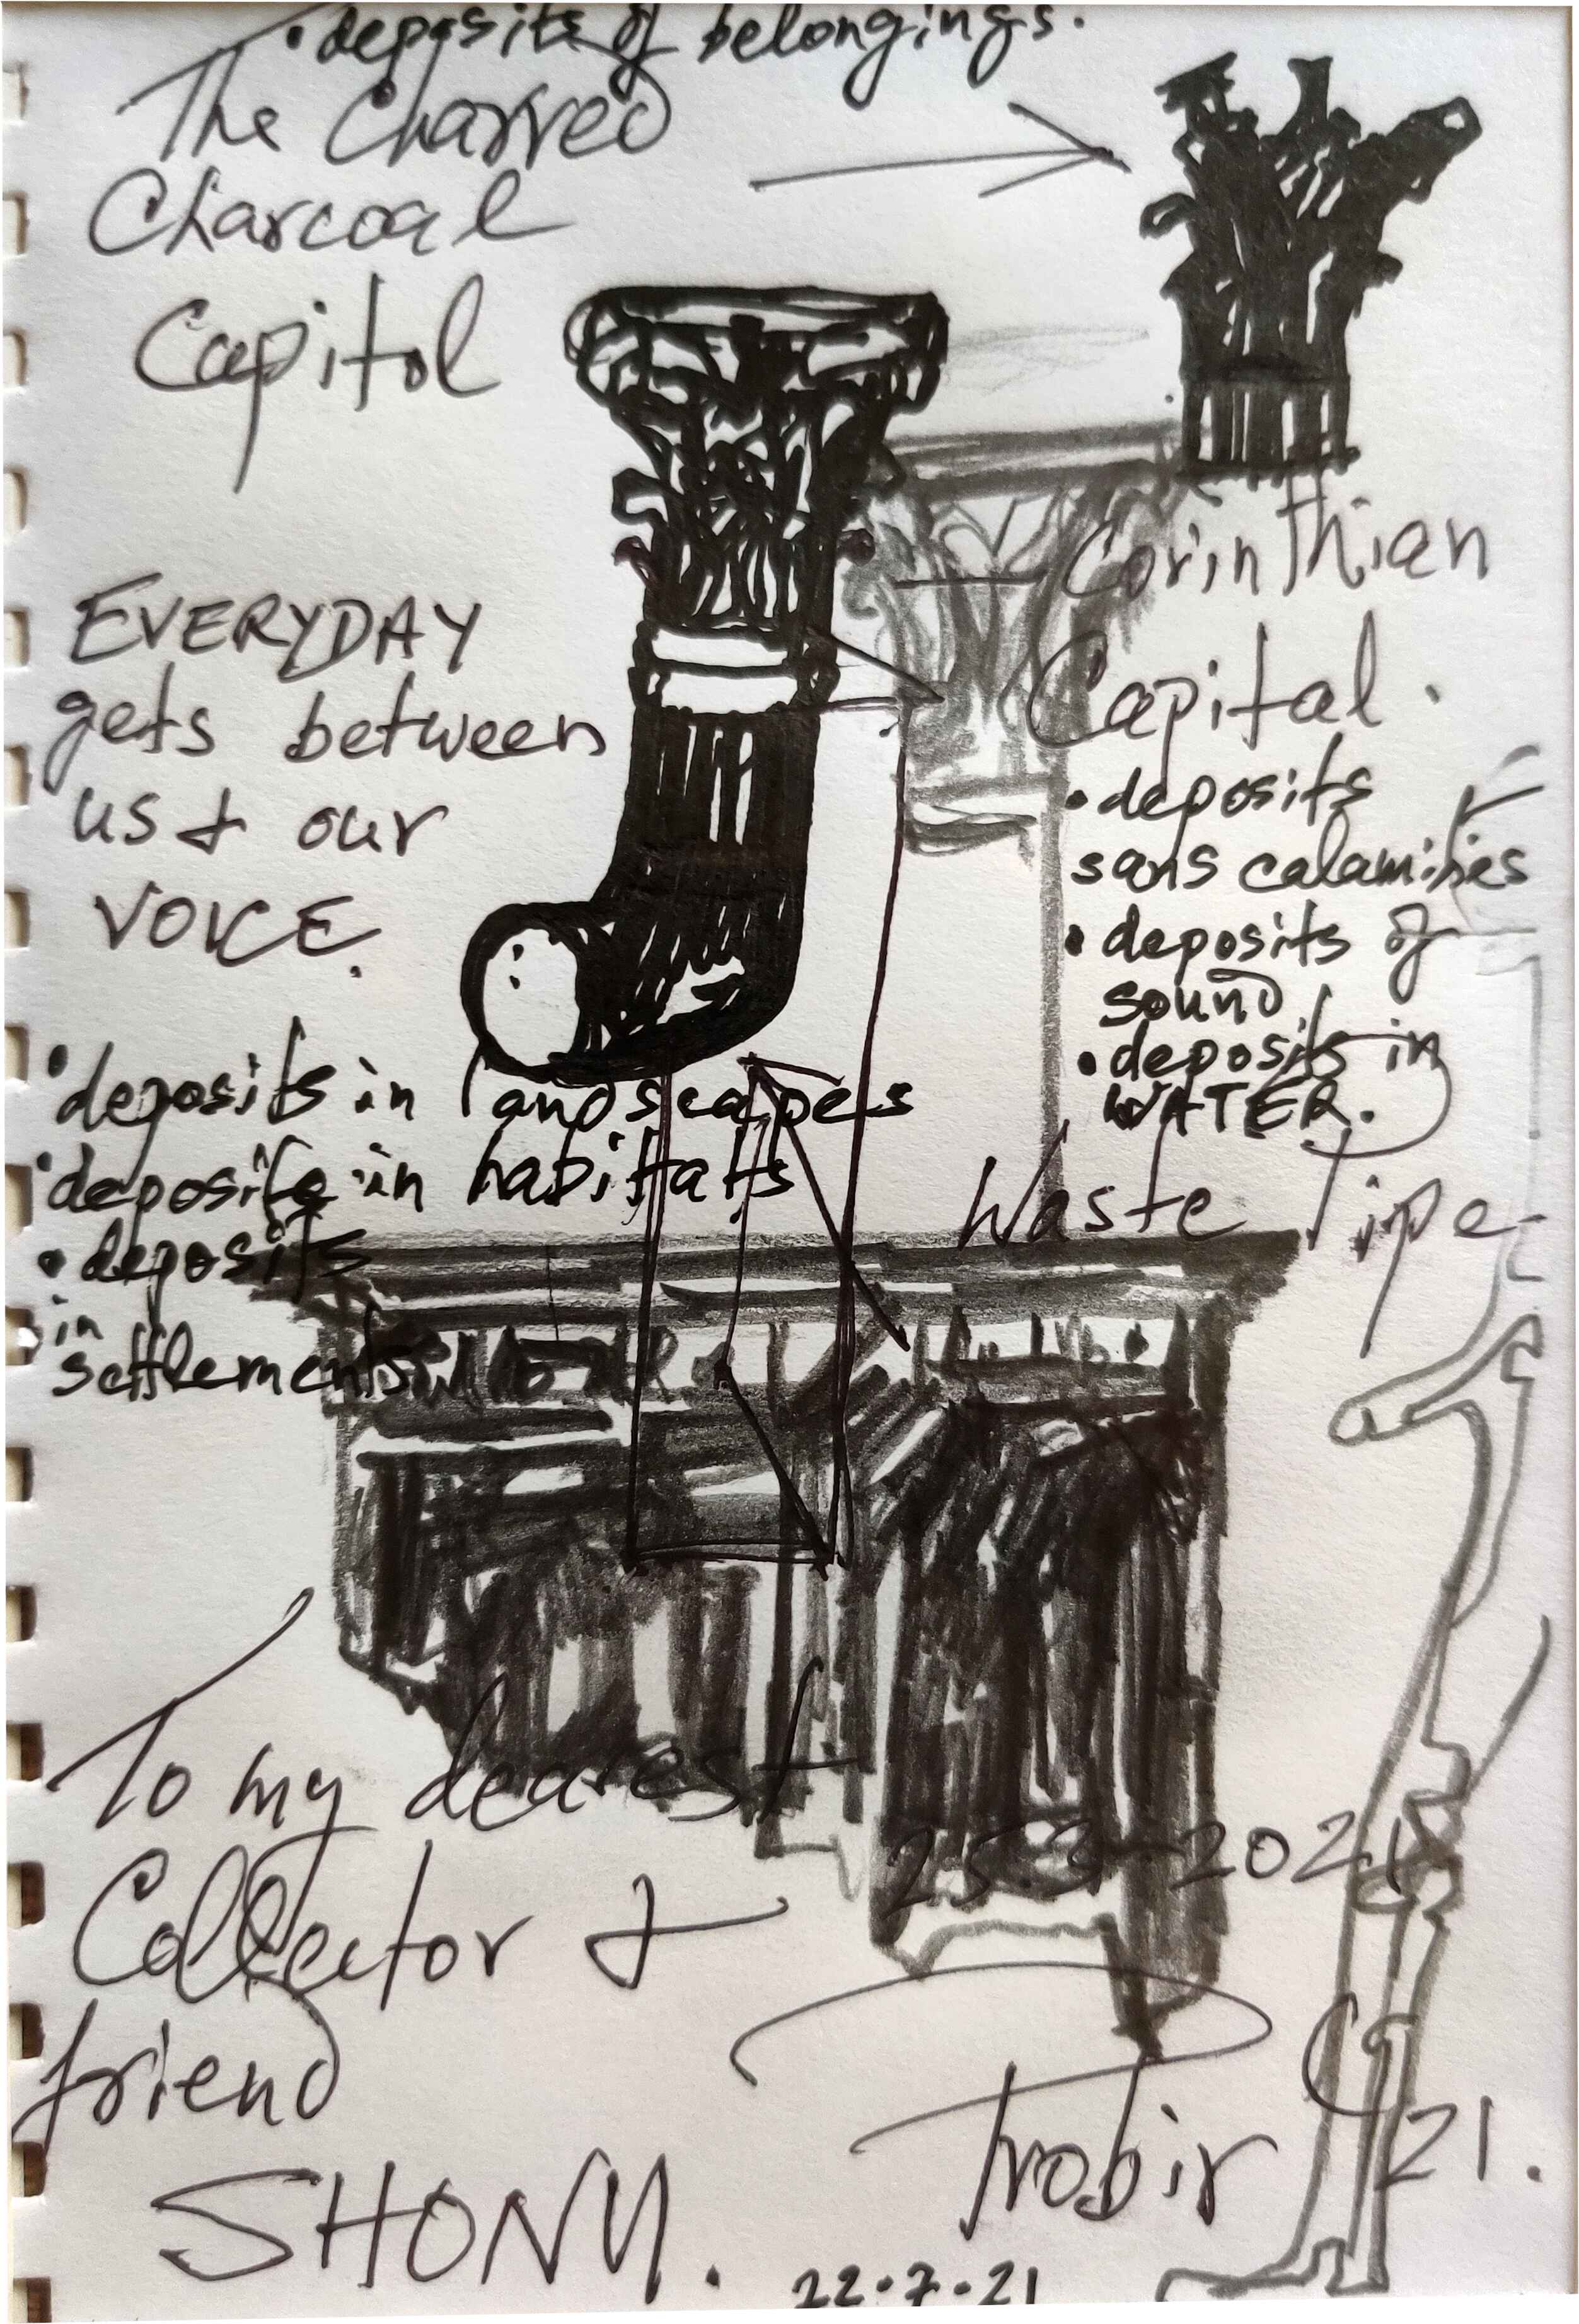 • deposits of belongings.
The Charred
Charcoal
Capitol
Corinthian
Capital.
• deposits
sans calamities
• deposits of
sound
• deposits in
WATER.
Waste Pipe
EVERYDAY
gets between
us & our
VOICE.
• deposits in landscapes
• deposits in habitats
• deposits
in
settlements
To my dearest
Collector &
friend
SHONY.
25.3-2021
Probir
21.
22.7.21